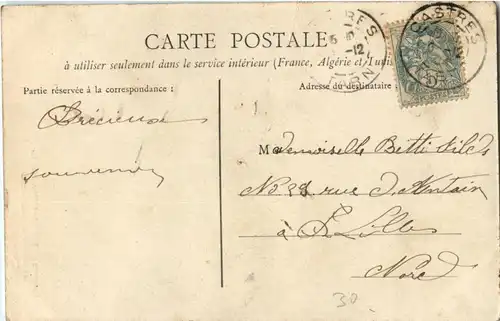 CARTE POSTALE
à utiliser seulement dans le service intérieur (France, Algérie et Tunis
Partie réservée à la correspondance :
Adresse du destinataire :
Précieux
souvenir
Mademoiselle Betti
No 28 rue d.
à Lille
Nord
30
CASTRES
TARN